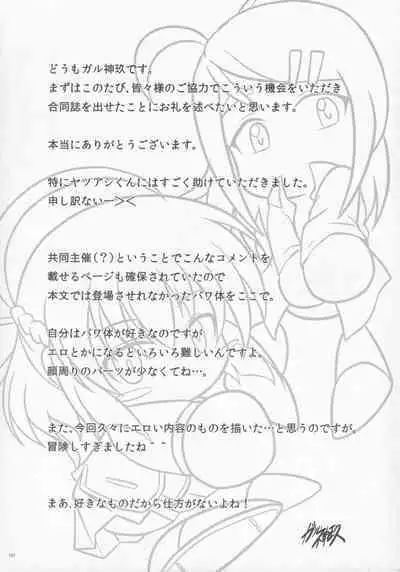 どうもガル神玖です。
まずはこのたび、皆々様のご協力でこういう機会をいただき
合同誌を出せたことにお礼を述べたいと思います。
本当にありがとうございます。
特にヤツアシくんにはすごく助けていただきました。
申し訳ないー＞＜
共同主催(？)ということでこんなコメントを
載せるページも確保されていたので
本文では登場させれなかったパワ体をここで。
自分はパワ体が好きなのですが
エロとかになるといろいろ難しいんですよ。
顔周りのパーツが少なくてね…。
また、今回久々にエロい内容のものを描いた…と思うのですが、
冒険しすぎましたね＾＾
まあ、好きなものだから仕方がないよね！
ガル神玖